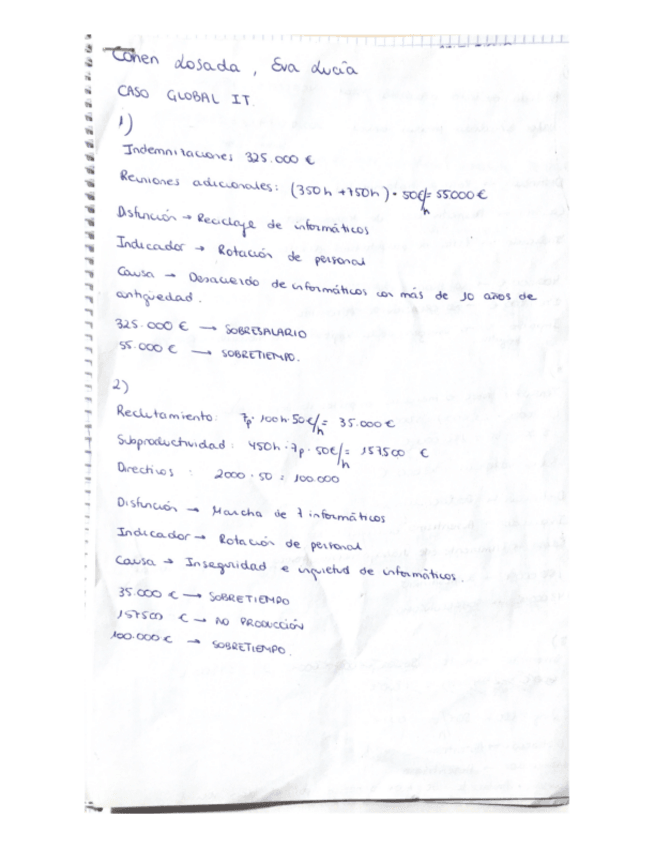 Cohen Losada, Eva Lucía
CASO GLOBAL IT.
1)
Indemnizaciones 325.000 €
Reuniones adicionales: (350h + 750h) · 50€/h = 55000 €
Disfunción → Reciclaje de informáticos
Indicador → Rotación de personal
Causa → Desacuerdo de informáticos con más de 10 años de
antigüedad.
325.000 € → SOBRESALARIO
55.000 € → SOBRETIEMPO.
2)
Reclutamiento: 7p · 100h · 50€/h = 35.000 €
Subproductividad: 450h · 7p · 50€/h = 157500 €
Directivos : 2000 · 50 = 100.000
Disfunción → Marcha de 7 informáticos
Indicador → Rotación de personal
Causa → Inseguridad e inquietud de informáticos.
35.000 € → SOBRETIEMPO
157500 € → NO PRODUCCIÓN
100.000 € → SOBRETIEMPO.